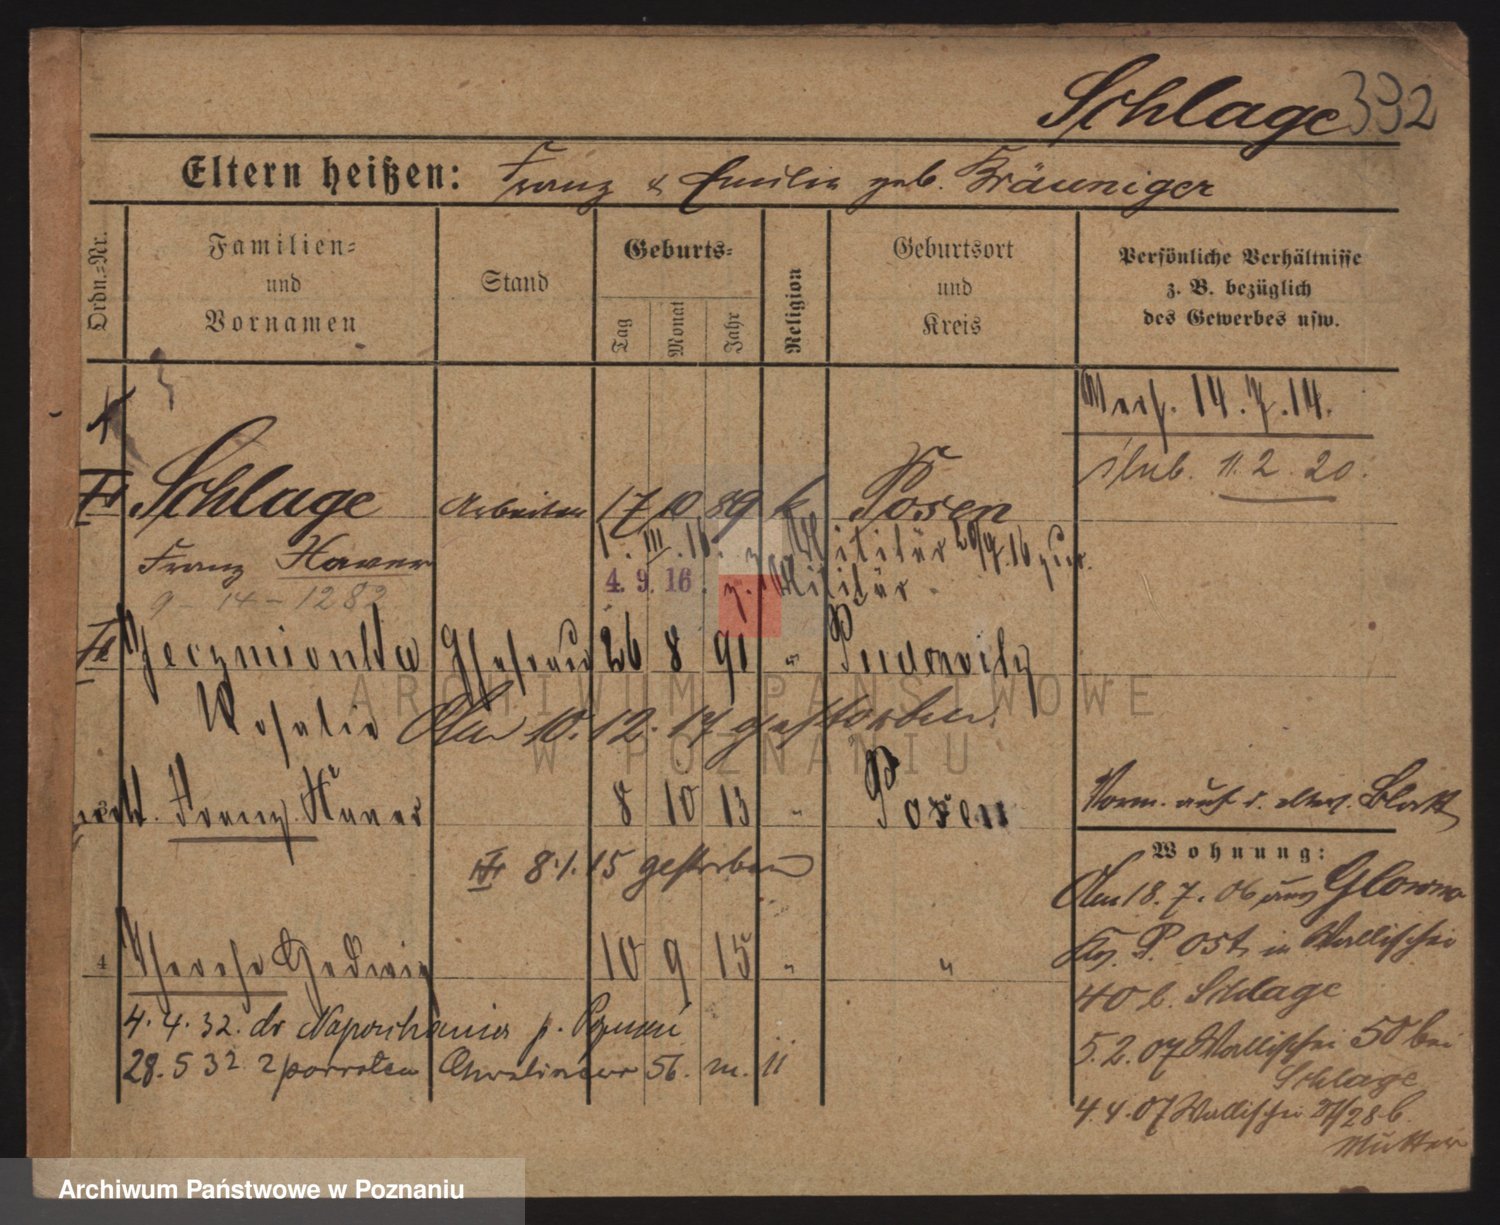 Schlage 392
Eltern heißen: Franz & Emilie geb. Bräuniger
Ordn.-Nr.
Familien-
und
Vornamen
Stand
Geburts-
Tag
Monat
Jahr
Religion
Geburtsort
und
Kreis
Persönliche Verhältnisse
z. B. bezüglich
des Gewerbes usw.
14.7.14.
11.2.20.
Schlage Arbeiter 17 10 89 k Posen
Franz Xaver
1. III. 16. z. Militär 20/9.16 zur.
4. 9. 16. z. Militär.
9-14-1282
Jeczmionka Ehefrau 26 8 91 " Pudewitz
Rosalie Am 10.12.17 gestorben.
Franz. Xaver 8 10 13 " Posen
8.1.15 gestorben
4 Therese Hedwig 10 9 15 " "
4.4.32. do p. Poznań
28.5 32 z powrotem 56. m. 11
Vorm. auf d. Blatt
Wohnung:
Am 18.7.06 aus Glowno
Krs. P. Ost, in Wallischei
40 b. Schlage
5.2.07 Wallischei 50 bei
Schlage
4.4.07 Wallischei 27/28 b.
Mutter
ARCHIWUM PAŃSTWOWE
W POZNANIU
Archiwum Państwowe w Poznaniu